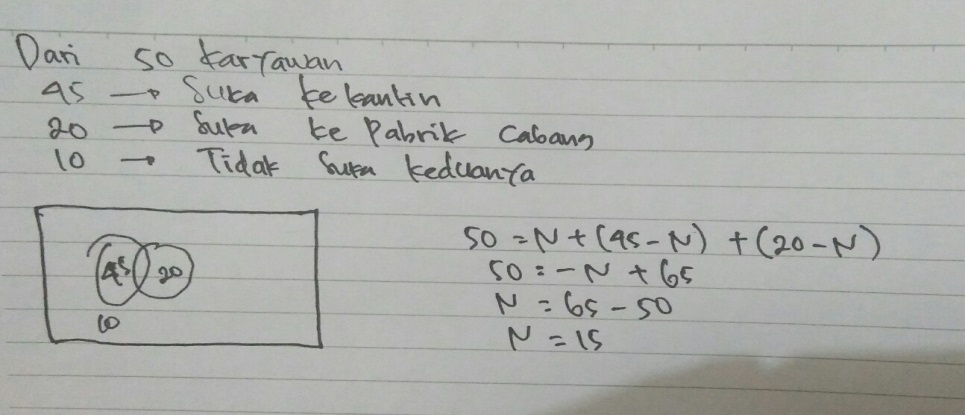 Dari 50 karyawan
45 → Suka ke kantin
20 → Suka ke Pabrik Cabang
10 → Tidak Suka keduanya
45 20
10
50 = N + (45 - N) + (20 - N)
50 = - N + 65
N = 65 - 50
N = 15